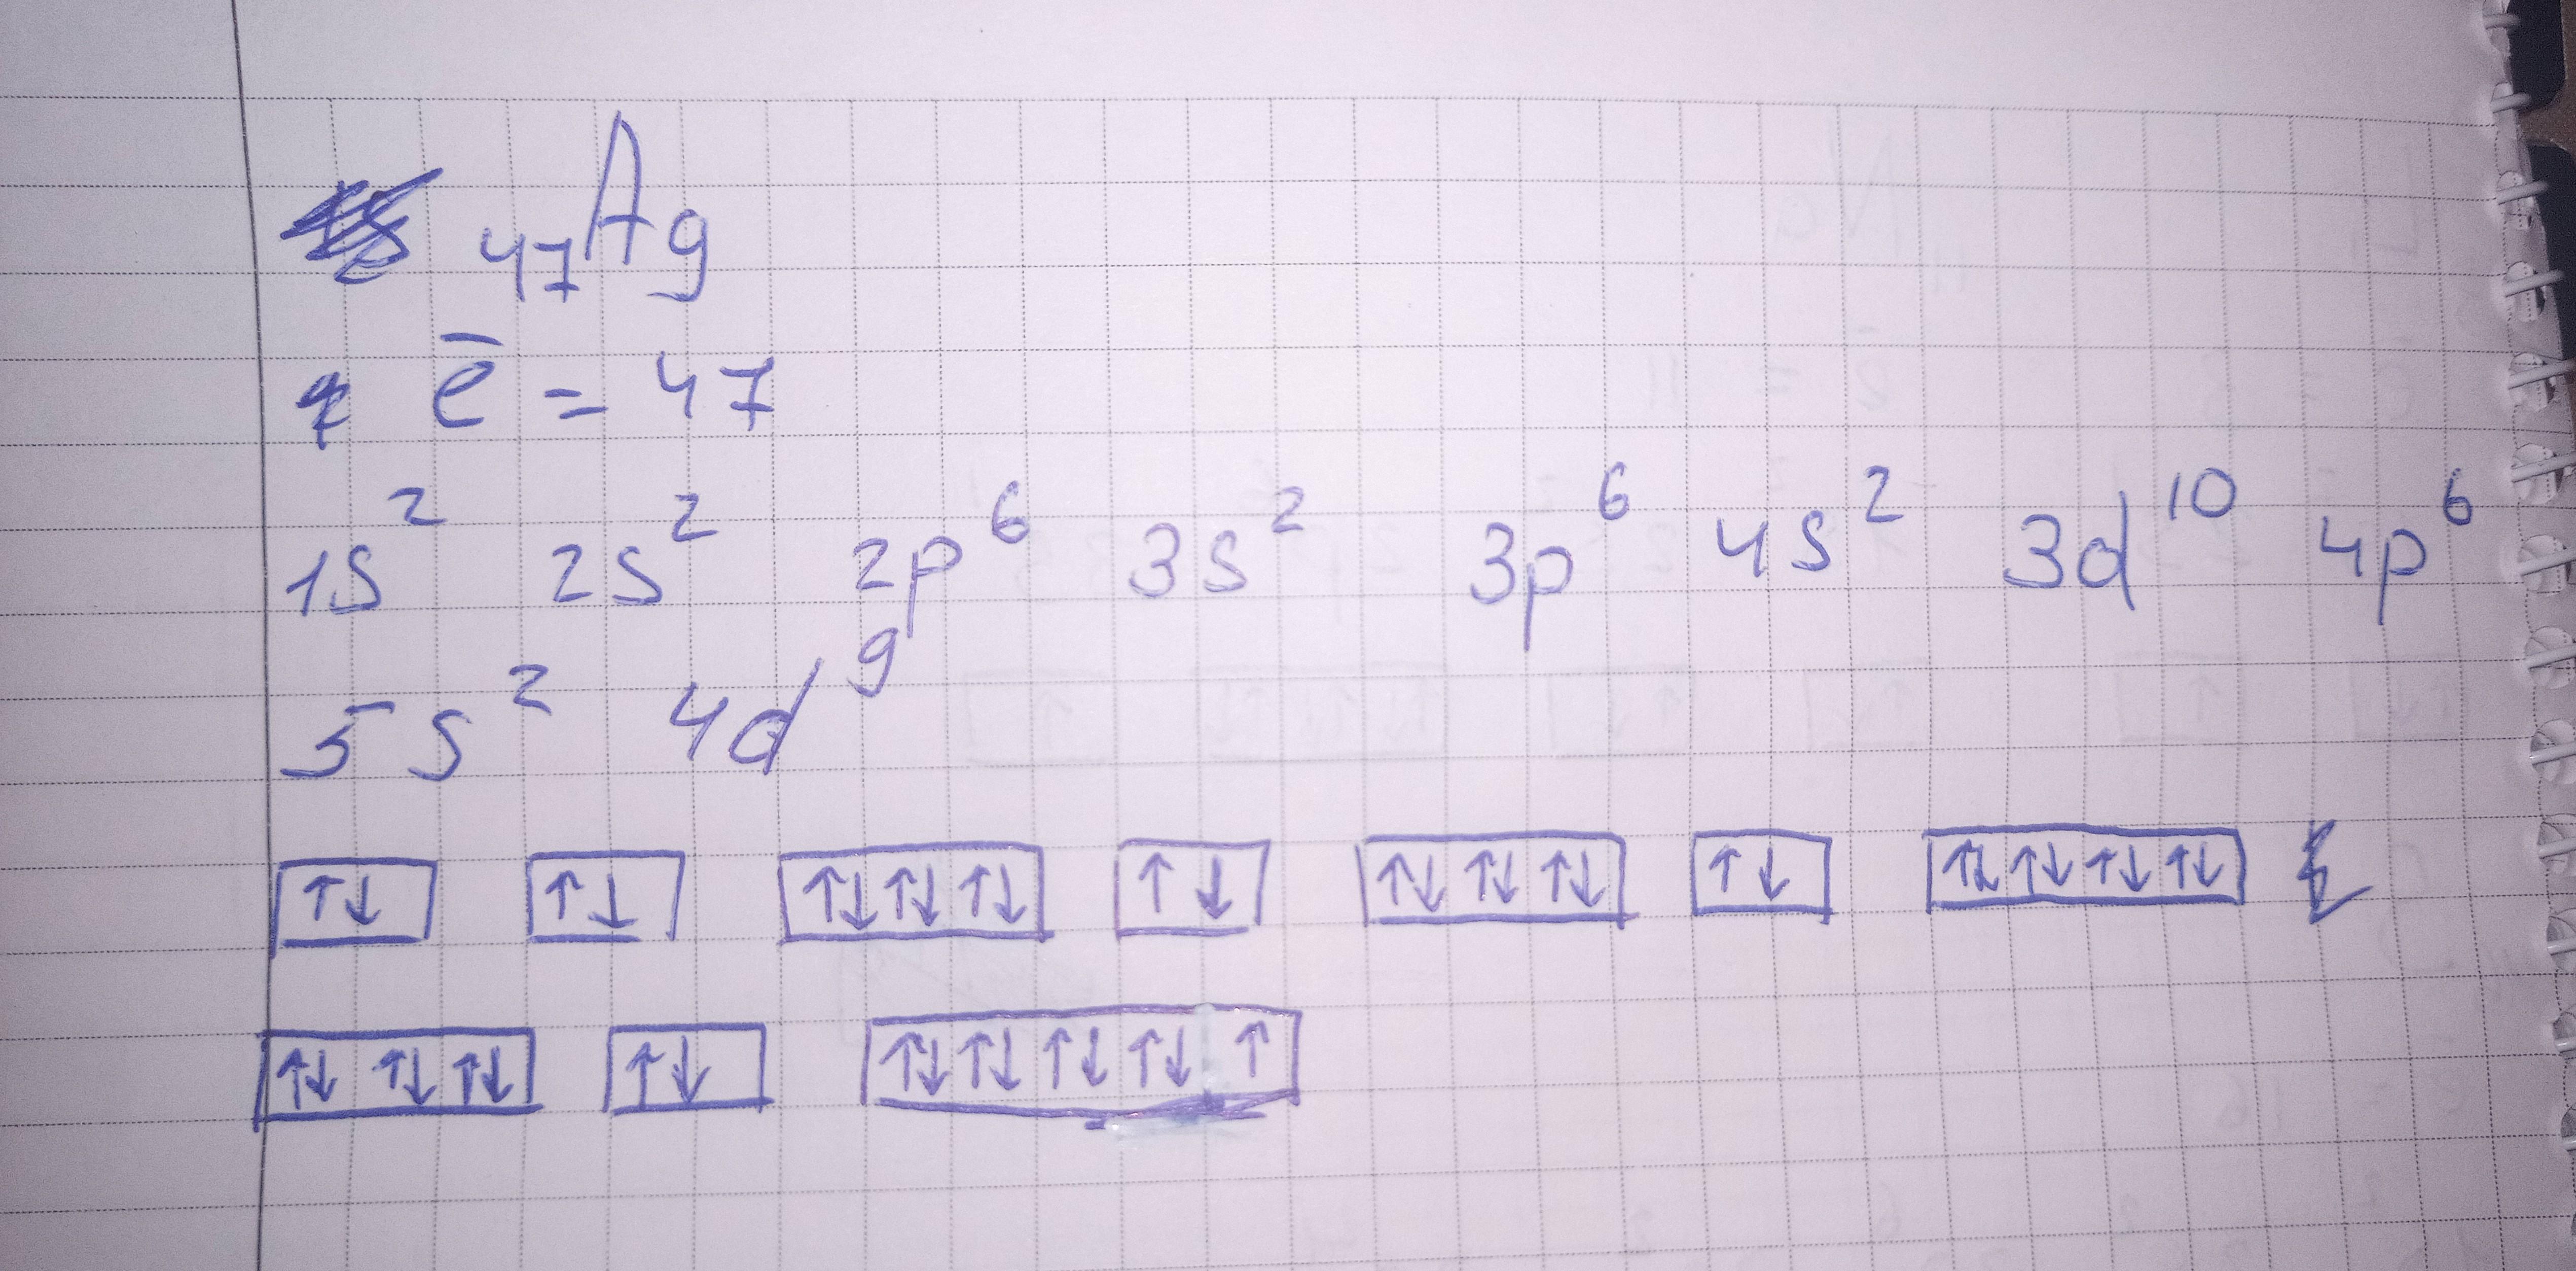 ₄₇Ag
ē = 47
1s² 2s² 2p⁶ 3s² 3p⁶ 4s² 3d¹⁰ 4p⁶
5s² 4d⁹
↑↓ ↑↓ ↑↓↑↓↑↓ ↑↓ ↑↓↑↓↑↓ ↑↓ ↑↓↑↓↑↓↑↓
↑↓↑↓↑↓ ↑↓ ↑↓↑↓↑↓↑↓↑